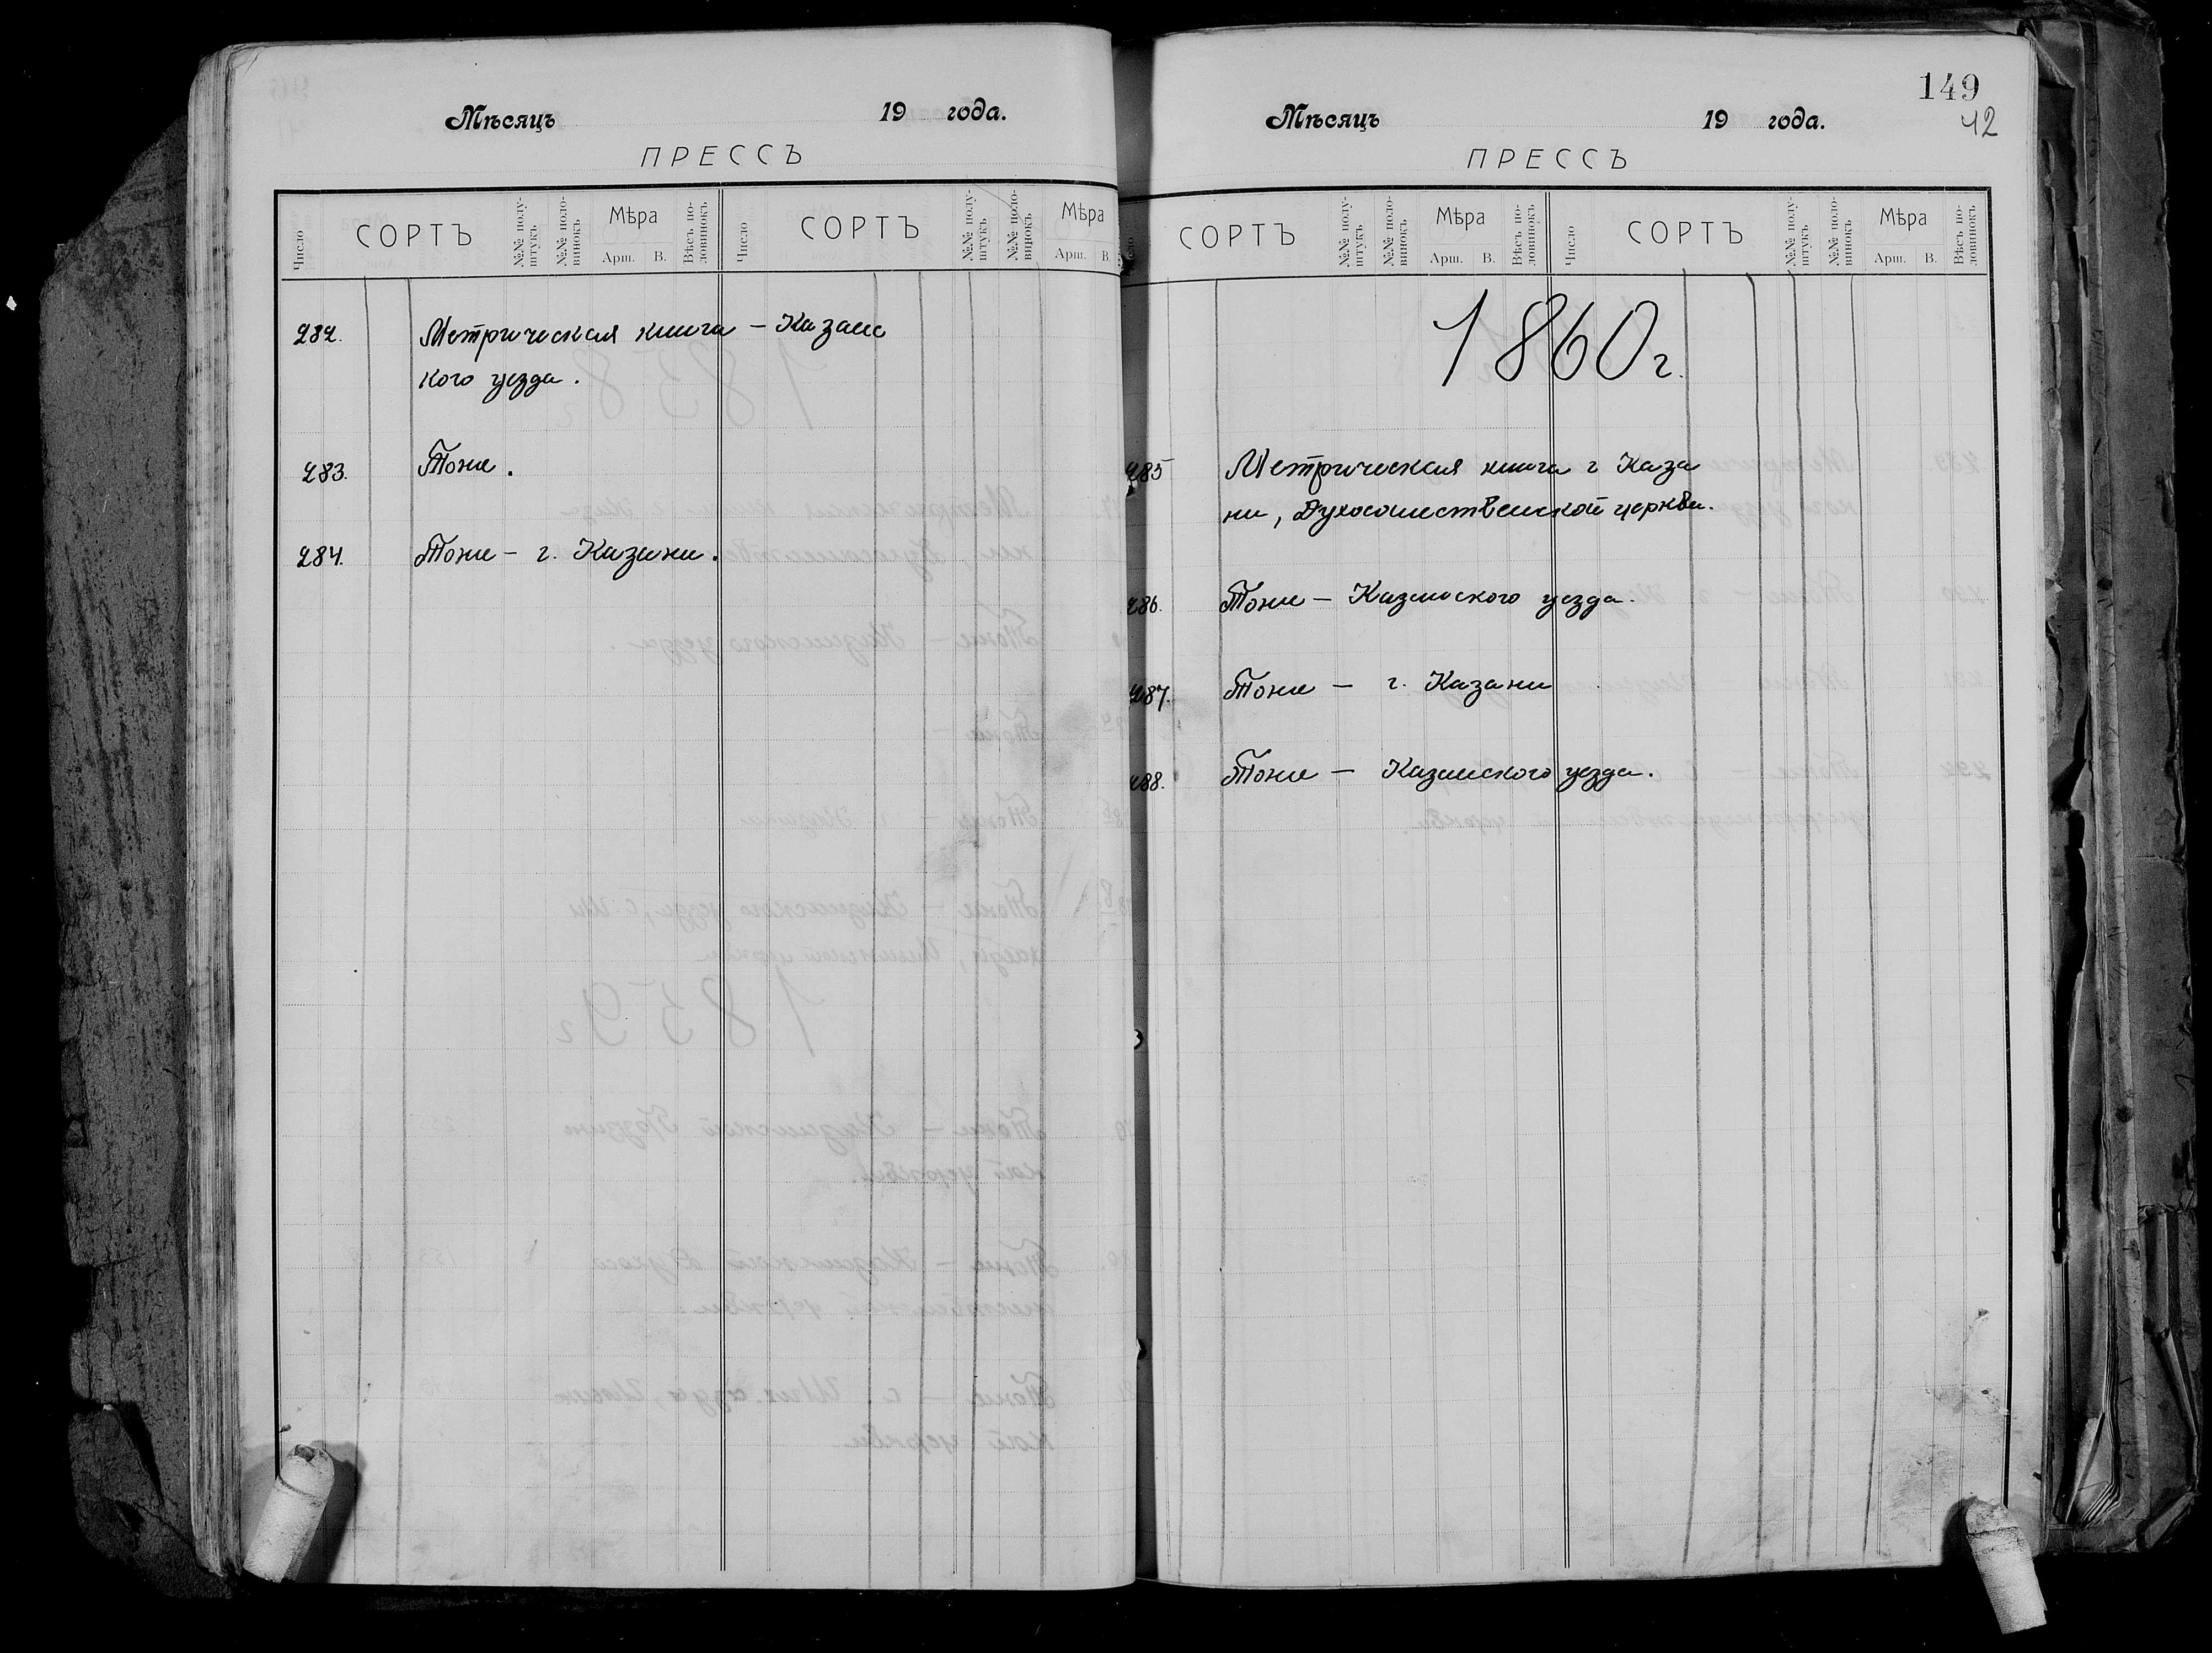 Мѣсяцъ 19 года.
ПРЕССЪ
Число СОРТЪ №№ полу-штукъ №№ поло-винокъ Мѣра Арш. В. Вѣсъ по-ловинокъ Число СОРТЪ №№ полу-штукъ №№ поло-винокъ Мѣра Арш. В.
282. Метрическая книга – Казанс
кого уезда.
283. Тоже.
284. Тоже – г. Казани.
149
42
Мѣсяцъ 19 года.
ПРЕССЪ
СОРТЪ №№ полу-штукъ №№ поло-винокъ Мѣра Арш. В. Вѣсъ по-ловинокъ Число СОРТЪ №№ полу-штукъ №№ поло-винокъ Мѣра Арш. В. Вѣсъ по-ловинокъ
1860 г.
285 Метрическая книга г Каза
ни, Духосошественской церкви.
286. Тоже – Казанского уезда.
287. Тоже – г. Казани
288. Тоже – Казанского уезда.